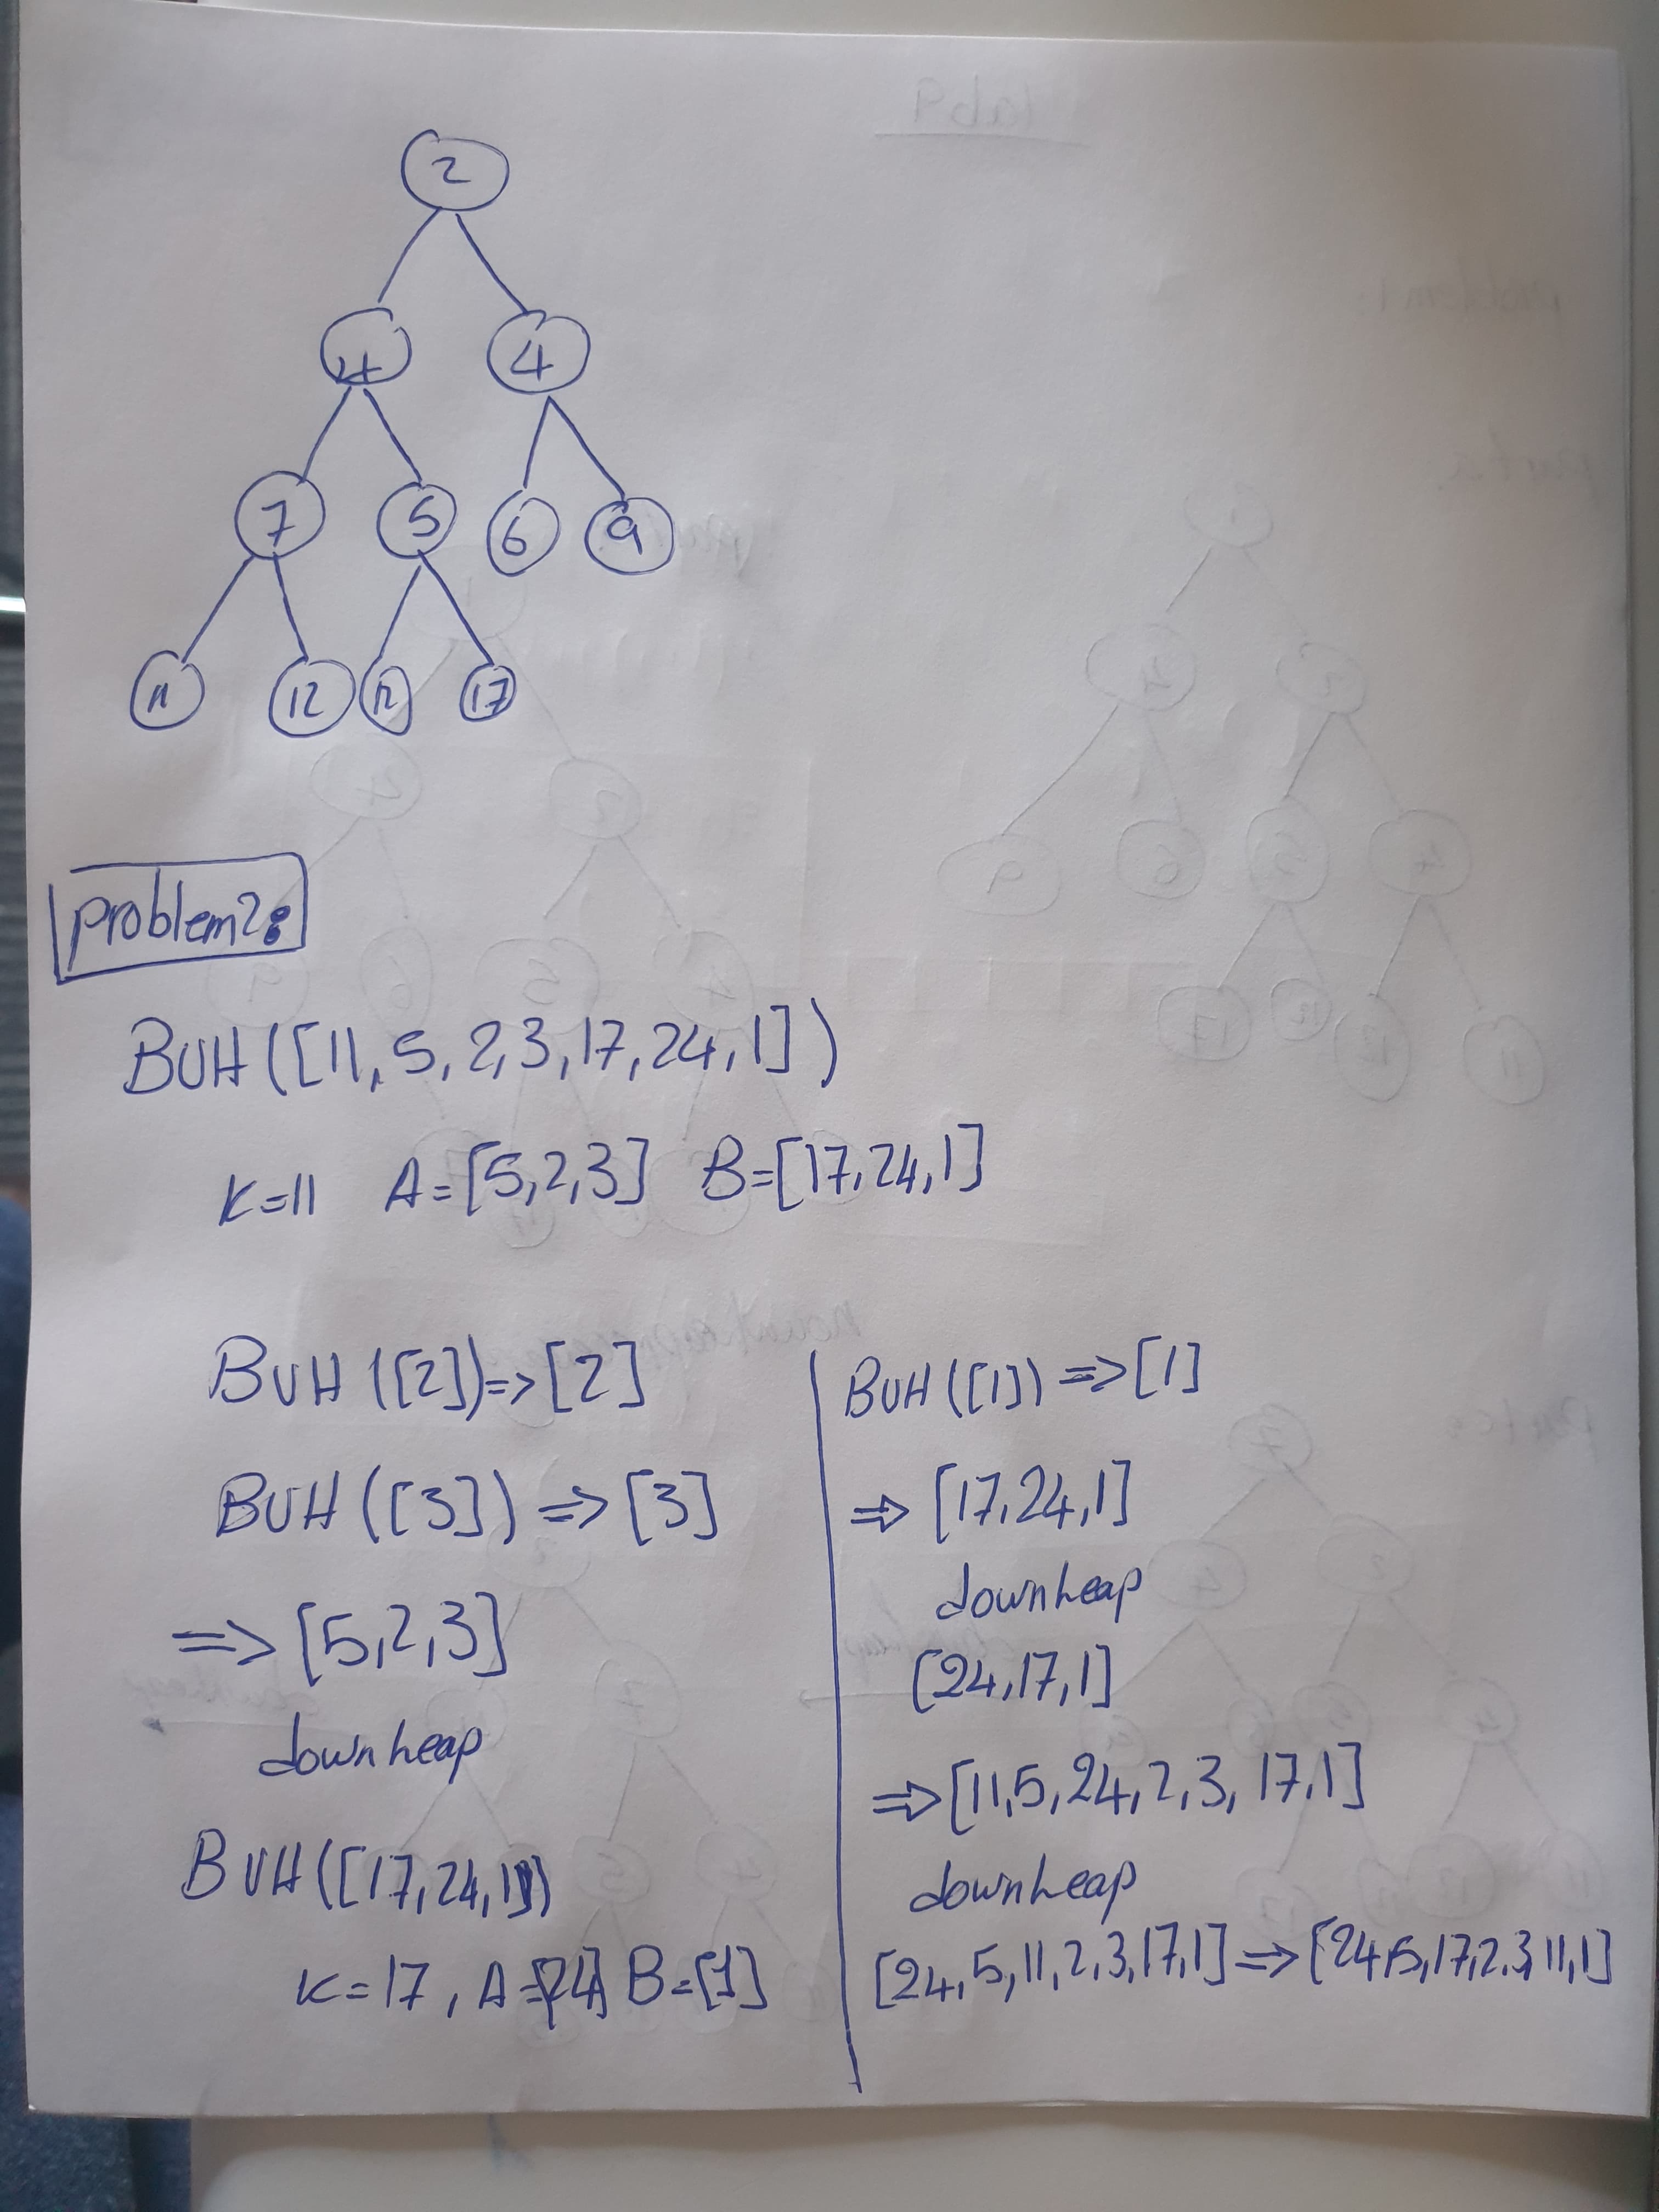 2
4 4
7 5 6 9
11 12 12 17
problem2:
BUH([11,5,2,3,17,24,1])
K=11 A=[5,2,3] B=[17,24,1]
BUH([2])=>[2]
BUH([3])=>[3]
=>[5,2,3]
downheap
BUH([17,24,1])
K=17, A=[24] B=[1]
BUH([1])=>[1]
=>[17,24,1]
downheap
[24,17,1]
=>[11,5,24,2,3,17,1]
downheap
[24,5,11,2,3,17,1]=>[24,5,17,2,3,11,1]